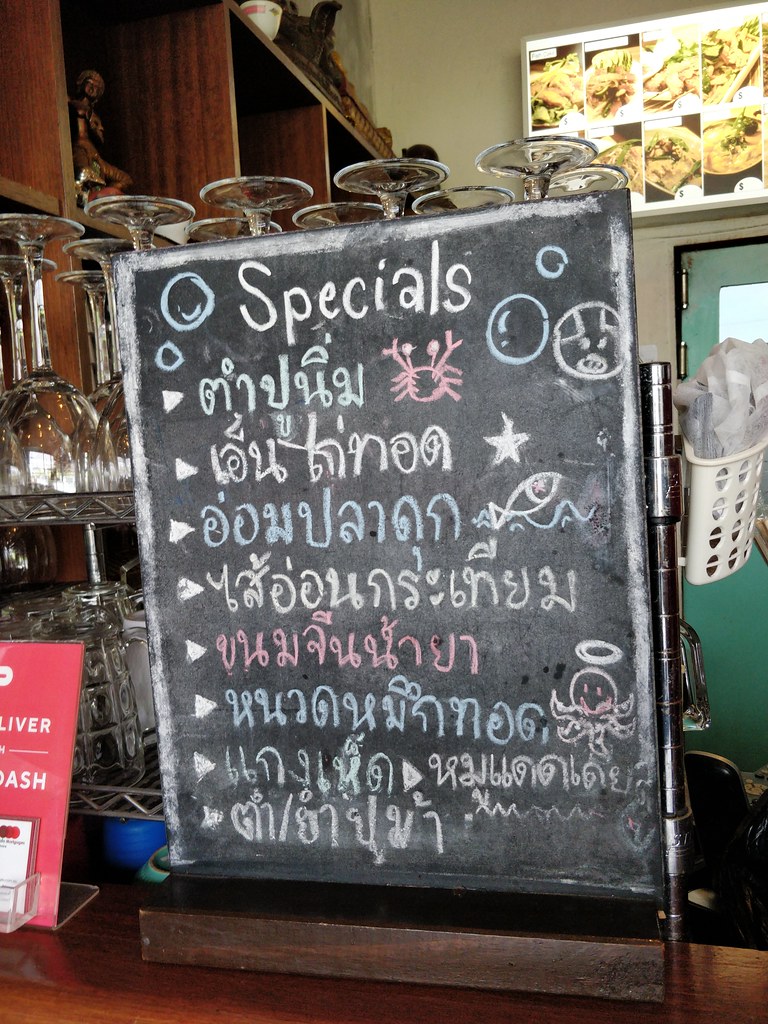 Specials
ตำปูนิ่ม
เอ็นไก่ทอด
อ่อมปลาดุก
ไส้อ่อนกระเทียม
ขนมจีนน้ำยา
หนวดหมึกทอด
แกงเห็ด หมูแดดเดียว
ตำ/ยำปูม้า
LIVER
DASH